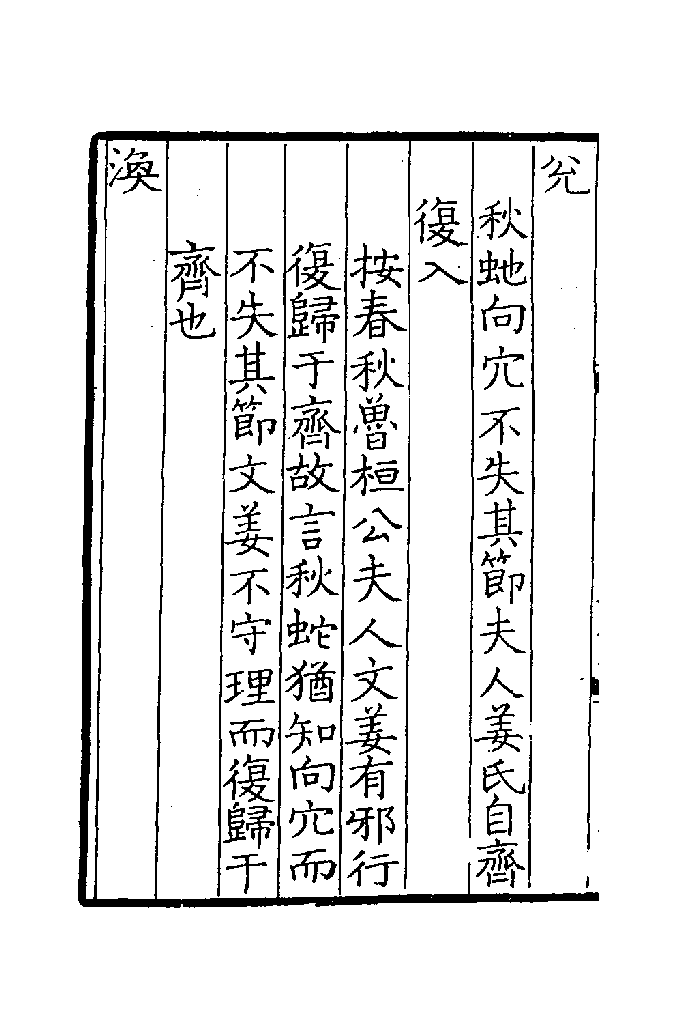 兊
秋虵向穴不失其節夫人姜氏自齊
復入
按春秋魯桓公夫人文姜有邪行
復歸于齊故言秋蛇猶知向穴而
不失其節文姜不守理而復歸于
齊也
渙